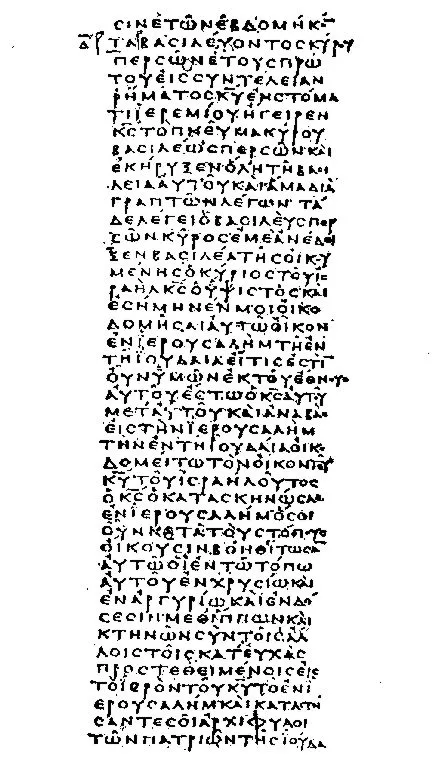 ϹΙΝΕΤΩΝΕΒΔΟΜΗΚΟ̅
ΤΑΒΑϹΙΛΕΥΟΝΤΟϹΚΥΡΟΥ
ΠΕΡϹΩΝΕΤΟΥϹΠΡΩ
ΤΟΥΕΙϹϹΥΝΤΕΛΕΙΑΝ
ΡΗΜΑΤΟϹΚ̅Υ̅ΕΝϹΤΟΜΑ
ΤΙΙΕΡΕΜΙΟΥΗΓΕΙΡΕΝ
Κ̅Ϲ̅ΤΟΠΝΕΥΜΑΚΥΡΟΥ
ΒΑϹΙΛΕΩϹΠΕΡϹΩΝΚΑΙ
ΕΚΗΡΥΞΕΝΟΛΗΤΗΒΑϹΙ
ΛΕΙΑΑΥΤΟΥΚΑΙΑΜΑΔΙΑ
ΓΡΑΠΤΩΝΛΕΓΩΝΤΑ
ΔΕΛΕΓΕΙΟΒΑϹΙΛΕΥϹΠΕΡ
ϹΩΝΚΥΡΟϹΕΜΕΑΝΕΔΕΙ
ΞΕΝΒΑϹΙΛΕΑΤΗϹΟΙΚΟΥ
ΜΕΝΗϹΟΚΥΡΙΟϹΤΟΥΙϹ
ΡΑΗΛΚ̅Ϲ̅ΟΥΨΙϹΤΟϹΚΑΙ
ΕϹΗΜΗΝΕΝΜΟΙΟΙΚΟ
ΔΟΜΗϹΑΙΑΥΤΩΟΙΚΟΝ
ΕΝΪΕΡΟΥϹΑΛΗΜΤΗΕΝ
ΤΗΙΟΥΔΑΙΑΕΙΤΙϹΕϹΤΙ̅
ΟΥΝΥΜΩΝΕΚΤΟΥΕΘΝΟΥϹ
ΑΥΤΟΥΕϹΤΩΟΚ̅Ϲ̅ΑΥΤΟΥ
ΜΕΤΑΥΤΟΥΚΑΙΑΝΑΒΑϹ
ΕΙϹΤΗΝΪΕΡΟΥϹΑΛΗΜ
ΤΗΝΕΝΤΗΙΟΥΔΑΙΑΟΙΚΟ
ΔΟΜΕΙΤΩΤΟΝΟΙΚΟΝΤΟΥ
Κ̅Υ̅ΤΟΥΙϹΡΑΗΛΟΥΤΟϹ
ΟΚ̅Ϲ̅ΟΚΑΤΑϹΚΗΝΩϹΑϹ
ΕΝΪΕΡΟΥϹΑΛΗΜΟϹΟΙ
ΟΥΝΚΑΤΑΤΟΥϹΤΟΠΟΥϹ
ΟΙΚΟΥϹΙΝΒΟΗΘΙΤΩϹΑ̅
ΑΥΤΩΟΙΕΝΤΩΤΟΠΩ
ΑΥΤΟΥΕΝΧΡΥϹΙΩΚΑΙ
ΕΝΑΡΓΥΡΙΩΚΑΙΕΝΔΟ
ϹΕϹΙΜΕΘΙΠΠΩΝΚΑΙ
ΚΤΗΝΩΝϹΥΝΤΟΙϹΑΛ
ΛΟΙϹΤΟΙϹΚΑΤΕΥΧΑϹ
ΠΡΟϹΤΕΘΕΙΜΕΝΟΙϹΕΙϹ
ΤΟΪΕΡΟΝΤΟΥΚ̅Υ̅ΤΟΕΝΪ
ΕΡΟΥϹΑΛΗΜΚΑΙΚΑΤΑϹΤΗ
ϹΑΝΤΕϹΟΙΑΡΧΙΦΥΛΟΙ
ΤΩΝΠΑΤΡΙΩΝΤΗϹΙΟΥΔΑ